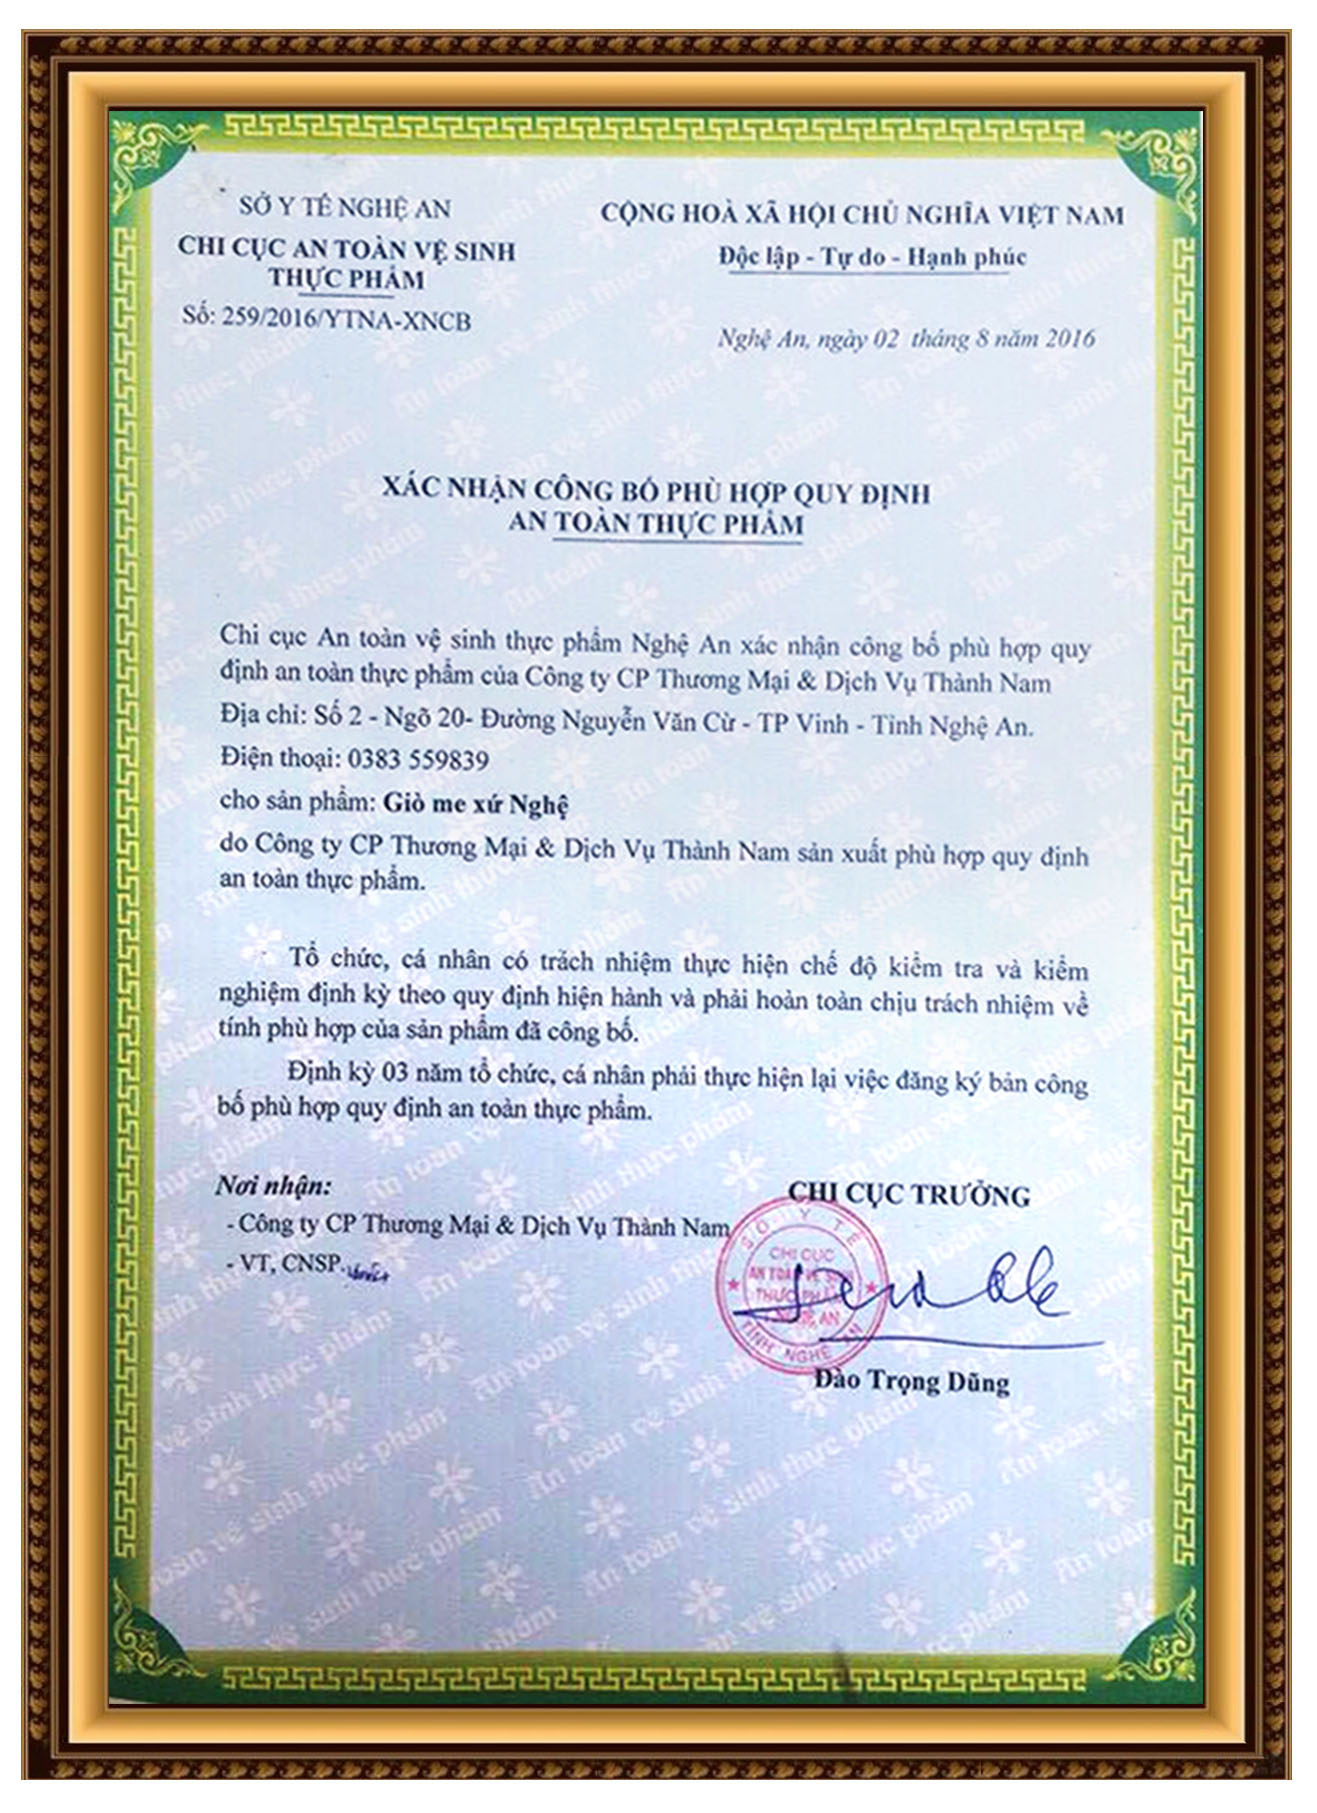 SỞ Y TẾ NGHỆ AN
CHI CỤC AN TOÀN VỆ SINH
THỰC PHẨM
Số: 259/2016/YTNA-XNCB
CỘNG HOÀ XÃ HỘI CHỦ NGHĨA VIỆT NAM
Độc lập - Tự do - Hạnh phúc
Nghệ An, ngày 02 tháng 8 năm 2016
XÁC NHẬN CÔNG BỐ PHÙ HỢP QUY ĐỊNH
AN TOÀN THỰC PHẨM
Chi cục An toàn vệ sinh thực phẩm Nghệ An xác nhận công bố phù hợp quy
định an toàn thực phẩm của Công ty CP Thương Mại & Dịch Vụ Thành Nam
Địa chỉ: Số 2 - Ngõ 20- Đường Nguyễn Văn Cừ - TP Vinh - Tỉnh Nghệ An.
Điện thoại: 0383 559839
cho sản phẩm: Giò me xứ Nghệ
do Công ty CP Thương Mại & Dịch Vụ Thành Nam sản xuất phù hợp quy định
an toàn thực phẩm.
Tổ chức, cá nhân có trách nhiệm thực hiện chế độ kiểm tra và kiểm
nghiệm định kỳ theo quy định hiện hành và phải hoàn toàn chịu trách nhiệm về
tính phù hợp của sản phẩm đã công bố.
Định kỳ 03 năm tổ chức, cá nhân phải thực hiện lại việc đăng ký bản công
bố phù hợp quy định an toàn thực phẩm.
Nơi nhận:
- Công ty CP Thương Mại & Dịch Vụ Thành Nam
- VT, CNSP.
CHI CỤC TRƯỞNG
SỞ Y TẾ
CHI CỤC
AN TOÀN VỆ SINH
THỰC PHẨM
NGHỆ AN
TỈNH NGHỆ AN
Đào Trọng Dũng